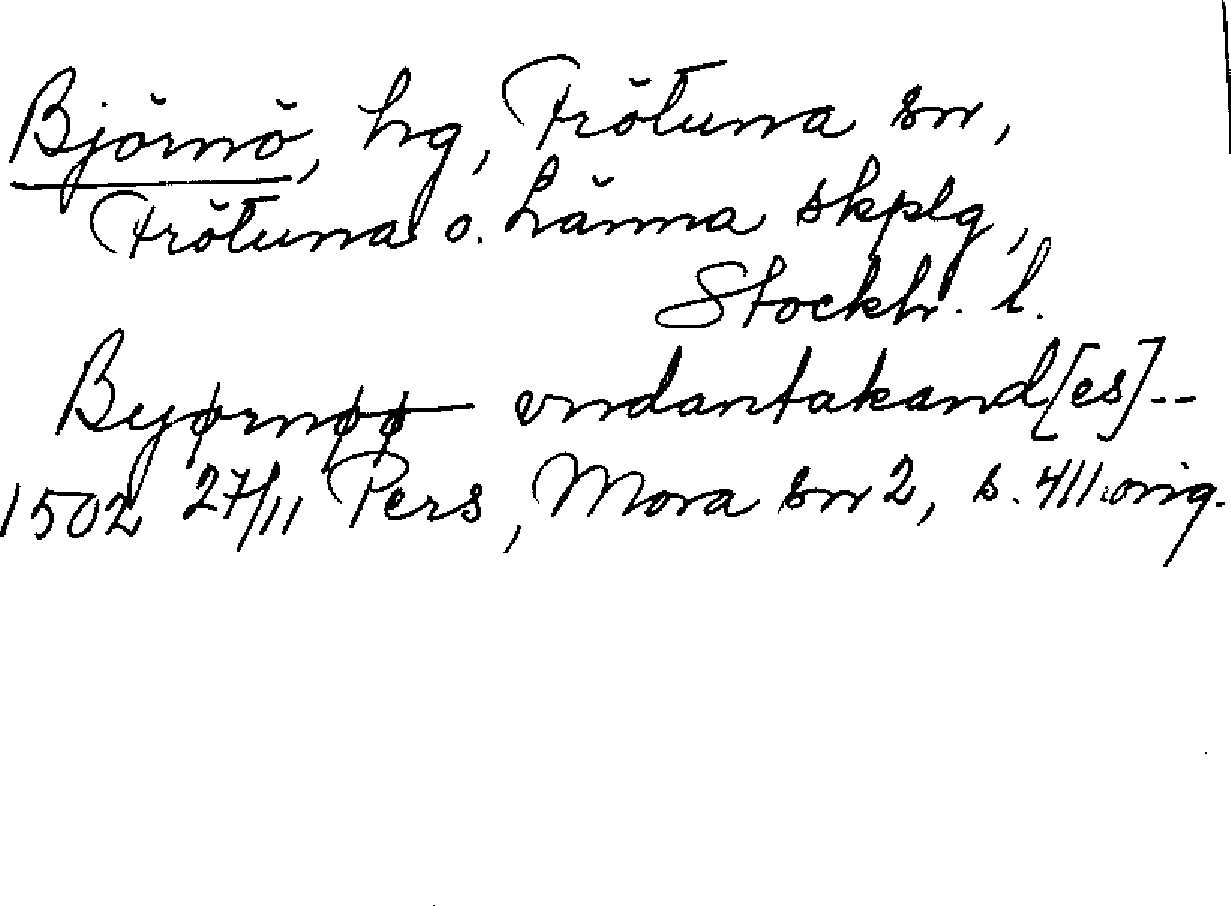 Björnö, hg, Frötuna sn,
Frötuna o. Länna skplg,
Stockh. l.
Byørnøø vndantakand[es]--
1502 27/11 Pers, Mora sn 2, s. 411.orig.